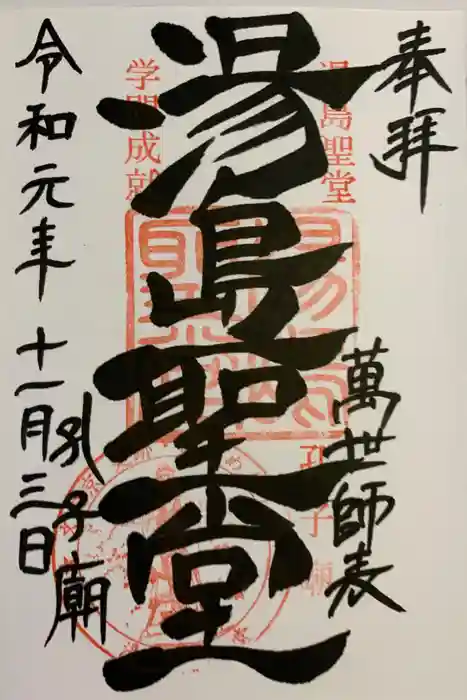 奉拝
湯島聖堂
萬世師表
孔子廟
湯島聖堂
学問成就
孔子廟
令和元年十一月三日